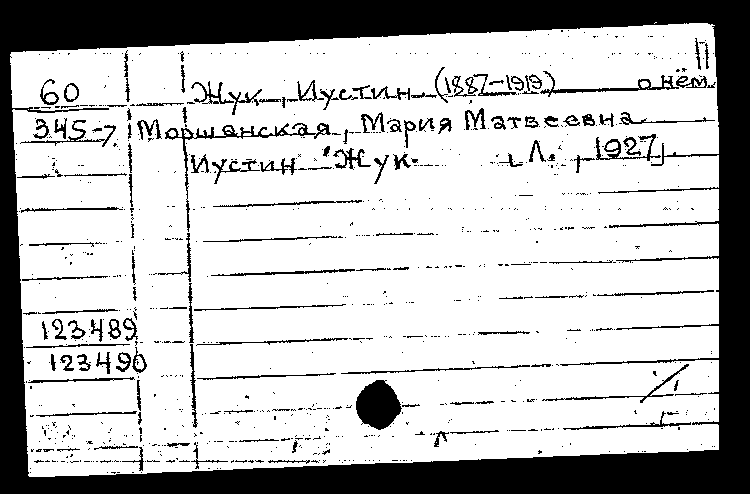 П
60 Жук, Иустин (1887-1919) о нём
345-7 Моршанская, Мария Матвеевна
Иустин Жук. [Л., 1927].
123489
123490